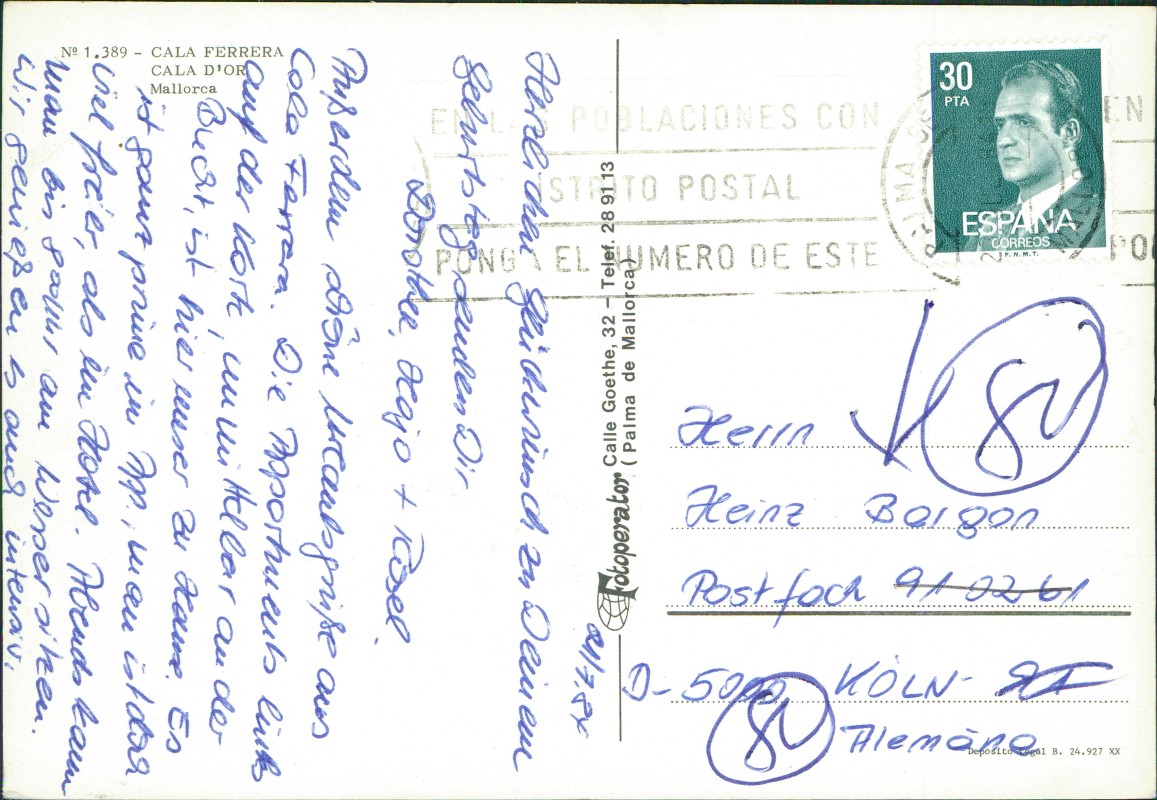 Nº 1.389 - CALA FERRERA
CALA D'OR
Mallorca
Herzlichen Glückwunsch zu Deinem
Geburtstag senden Dir
Dorothee, Hajo + Rosel.
Außerdem schöne Urlaubsgrüße aus
Cala Ferrera. Die Appartments links
auf der Karte, unmittelbar an der
Bucht, ist hier unser zu Hause. Es
ist ganz prima im App., man ist da
viel freier, als im Hotel. Abends kann
man bis spät am Wasser sitzen.
Wir genießen es auch intensiv.
21/7.87
Fotoperator Calle Goethe, 32 – Telef. 28 91 13
(Palma de Mallorca)
30
PTA
ESPAÑA
CORREOS
F.N.M.T.
EN LAS POBLACIONES CON EN
DISTRITO POSTAL
PONGA EL NUMERO DE ESTE
80
Herrn
Heinz Bargon
Postfach 91 02 61
D-5000 KÖLN- 91
80
Alemána
Deposito Legal B. 24.927 XX